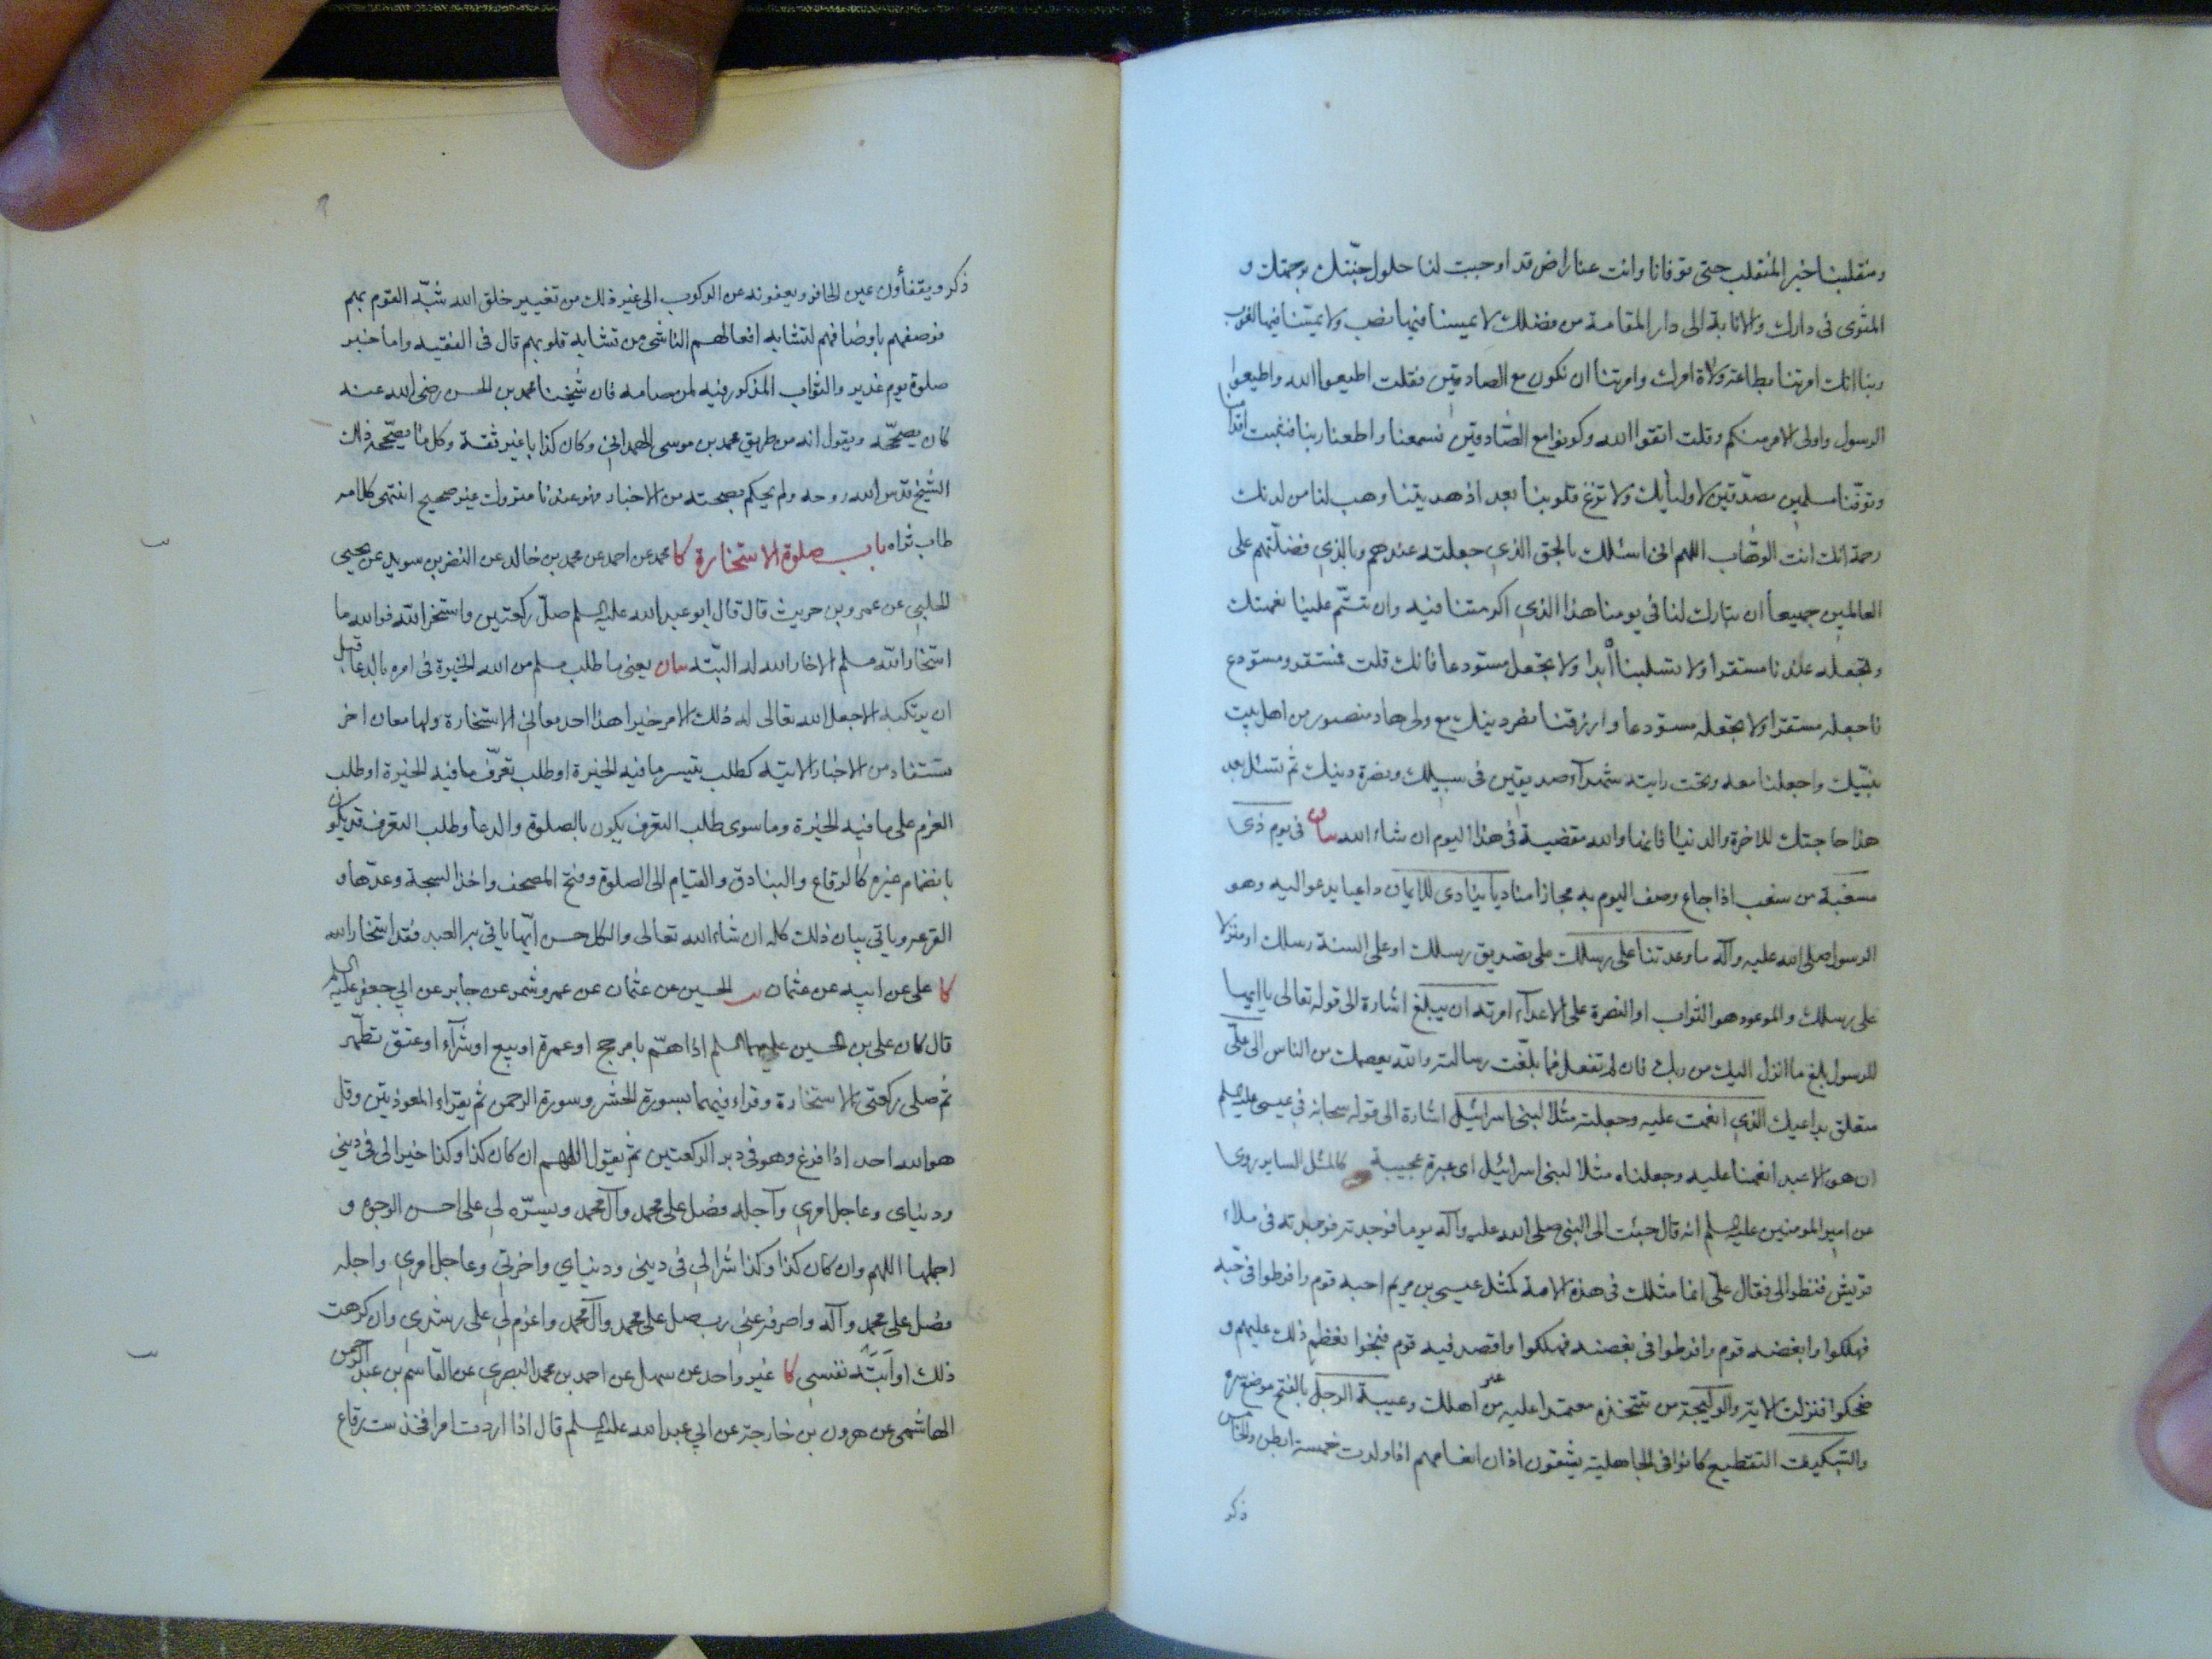 ومنقلبنا خير المنقلب حتى توفانا وانت عنا راض قد اوجبت لنا حلول جنتك برحمتك و
المثوى فى دارك والانابة الى دار المقامة من فضلك لا يمسنا فيها نصب ولا يمسنا فيها لغوب
ربنا انك امرتنا بطاعة ولاة امرك وامرتنا ان نكون مع الصادقين فقلت اطيعوا الله واطيعوا
الرسول واولى الامر منكم وقلت اتقوا الله وكونوا مع الصّادقين فسمعنا واطعنا ربنا فثبت اقدامنا
وتوفّنا مسلمين مصدّقين لاوليائك ولا تزغ قلوبنا بعد اذ هديتنا وهب لنا من لدنك
رحمة انك انت الوهّاب اللهم انى اسئلك بالحق الذي جعلته عندهم وبالذي فضلتهم على
العالمين جميعا ان تبارك لنا فى يومنا هذا الذي اكرمتنا فيه وان تتمّ علينا نعمتك
وتجعله عندنا مستقرا ولا تسلبناه أبدا ولا تجعله مستودعا فانك قلت فمستقر ومستودع
فاجعله مستقرا ولا تجعله مستودعا وارزقنا نصر دينك مع ولى هاد منصور من اهل بيت
نبيّك واجعلنا معه وتحت رايته شهدآء صديقين فى سبيلك ونصرة دينك ثم تسئل بعد
هذا حاجتك للاخرة والدنيا فانها والله مقضية فى هذا اليوم ان شاء الله بيان فى يوم ذى
مسغبة من سغب اذا جاع وصف اليوم به مجازا مناديا ينادى للايمان داعيا يدعو اليه وهو
الرسول صلى الله عليه وآله ما وعدتنا على رسلك على تصديق رسلك او على السنة رسلك او منزلا
على رسلك والموعود هو الثواب او النصرة على الاعدآء امرته ان يبلغ اشارة الى قوله تعالى يا ايها
الرسول بلغ ما انزل اليك من ربك فان لم تفعل فما بلّغت رسالته والله يعصمك من الناس الى علىّ
متعلق بداعيك الذي انعمت عليه وجعلته مثلا لبنى اسرائيل اشارة الى قوله سبحانه فى عيسى عليه السلم
ان هو الا عبد انعمنا عليه وجعلناه مثلا لبنى اسرائيل اى عبرة عجيبة كالمثل الساير روى
عن امير المومنين عليه السلم انه قال جئت الى النبى صلى الله عليه وآله يوما فوجدته فى ملاء
قريش فنظر الى فقال علىّ انما مثلك فى هذه الامة كمثل عيسى بن مريم احبه قوم وافرطوا فى حبّه
فهلكوا وابغضه قوم وافرطوا فى بغضه فهلكوا واقتصد فيه قوم فنجوا فعظم ذلك عليهم و
ضحكوا فنزلت الاية والوليجة من تتخذه معتمدا عليه من غير اهلك وعيبة الرجل بالفتح موضع سره
والتبكيت التقطيع كانوا فى الجاهلية يشقون اذان انعامهم اذا ولدت خمسة ابطن والخامس
ذكر
ذكر ويفقأون عين الحافر ويعفونه عن الركوب الى غير ذلك من تغيير خلق الله شبّه القوم بهم
فوصفهم باوصافهم لتشابه افعالهم الناشى من تشابه قلوبهم قال فى الفقيه واما خبر
صلوة يوم غدير والثواب المذكور فيه لمن صامه فان شيخنا محمد بن الحسن رضى الله عنه
كان لا يصحّحه ويقول انه من طريق محمد بن موسى الهمدانى وكان كذابا غير ثقة وكل ما لم يصحّحه ذلك
الشيخ قدس الله روحه ولم يحكم بصحته من الاخبار فهو عندنا متروك غير صحيح انتهى كلامه
طاب ثراه باب صلوة الاستخارة كا محمد عن احمد عن محمد بن خالد عن النضر بن سويد عن يحيى
الحلبى عن عمرو بن حريث قال قال ابو عبد الله عليه السلم صلّ ركعتين واستخر الله فوالله ما
استخار الله مسلم الا خار الله له البتّة بيان يعنى ما طلب مسلم من الله الخيرة فى امره بالدعا قبل
ان يرتكبه الا جعل الله تعالى له ذلك الامر خيرا هذا احد معانى الاستخارة ولها معان اخر
تستفاد من الاخبار الاتية كطلب تيسر ما فيه الخيرة او طلب تعرّف ما فيه الخيرة او طلب
العزم على ما فيه الخيرة وما سوى طلب التعرف يكون بالصلوة والدعا وطلب التعرف قد يكون
بانضمام غيره كالرقاع والبنادق والقيام الى الصلوة وفتح المصحف واخذ السبحة وعدّها و
القرعة وياتى بيان ذلك كله ان شاء الله تعالى والكل حسن ايّها ياتى به العبد فقد استخار الله
كا على عن ابيه عن عثمان يب الحسين عن عثمان عن عمرو شمر عن جابر عن ابي جعفر عليه السلم
قال كان على بن الحسين عليهما السلم اذا همّ بامر حج او عمرة او بيع او شرآء او عتق تطهّر
ثم صلى ركعتى الاستخارة وقراء فيهما بسورة الحشر وسورة الرحمن ثم يقراء المعوذتين وقل
هو الله احد اذا فرغ وهو فى دبر الركعتين ثم يقول اللهم ان كان كذا وكذا خيرا لى فى دينى
ودنياى وعاجل امري وآجله فصل على محمد وآل محمد ويسّره لي على احسن الوجوه و
اجملها اللهم وان كان كذا وكذا شرا لي فى ديني ودنياي واخرتي وعاجل امري واجله
فصل على محمد وآله واصرفه عني رب صل على محمد وآل محمد واعزم لي على رشدي وان كرهت
ذلك او ابته نفسى كا غير واحد عن سهل عن احمد بن محمد البصري عن القاسم بن عبد الرحمن
الهاشمى عن هرون بن خارجة عن ابي عبد الله عليه السلم قال اذا اردت امرا فخذ ست رقاع